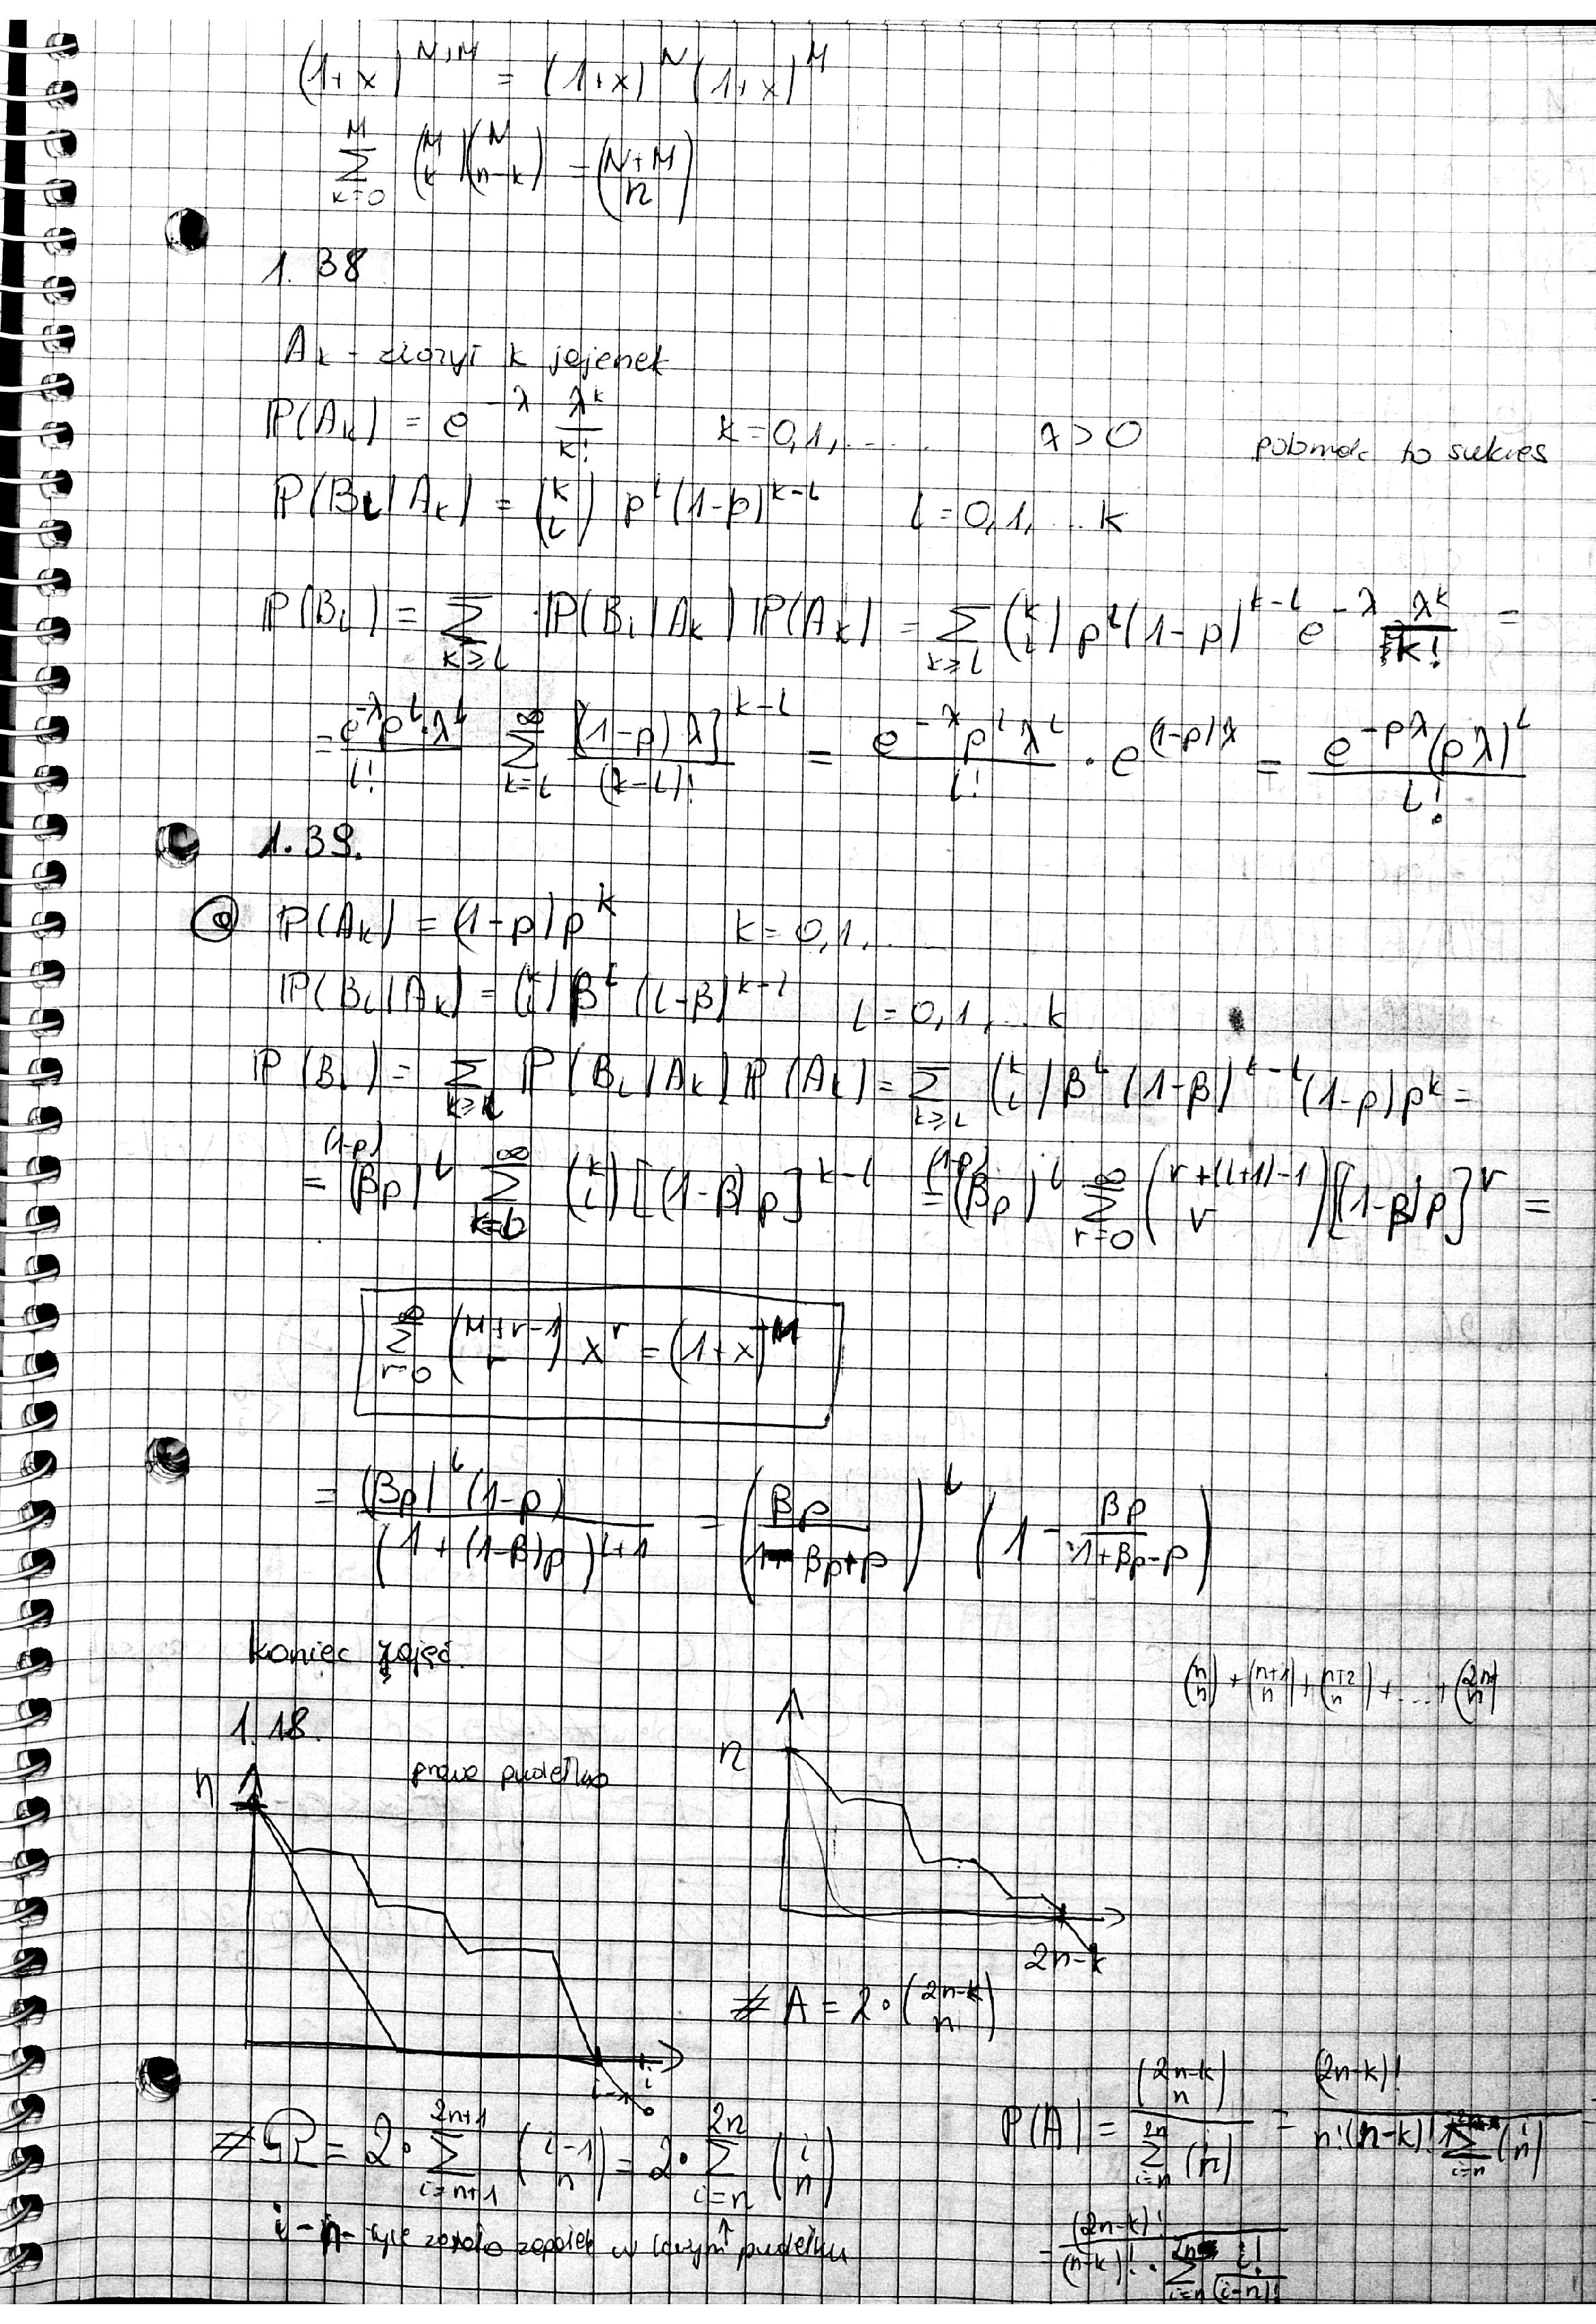 (1+x)^{N+M} = (1+x)^N (1+x)^M
∑_{k=0}^{M} (M k)(N n-k) = (N+M n)
1.38
A_k - złoży k jajenek
P(A_k) = e^{-λ} λ^k/k!   k=0,1,....   λ>0   to sukces
P(B_l|A_k) = (k l) p^l (1-p)^{k-l}   l=0,1,...k
P(B_l) = ∑_{k≥l} P(B_l|A_k) P(A_k) = ∑_{k≥l} (k l) p^l (1-p)^{k-l} e^{-λ} λ^k/k! =
= e^{-λ} p^l·λ^l / l! ∑_{k=l}^{∞} [(1-p)λ]^{k-l}/(k-l)! = e^{-λ} p^l λ^l / l! · e^{(1-p)λ} = e^{-pλ}(pλ)^l / l!
1.39.
P(A_k) = (1-p)p^k   k=0,1,...
P(B_l|A_k) = (k l) β^l (1-β)^{k-l}   l=0,1,...k
P(B_l) = ∑_{k≥l} P(B_l|A_k) P(A_k) = ∑_{k≥l} (k l) β^l (1-β)^{k-l} (1-p)p^k =
= (1-p)(βp)^l ∑_{k=l}^{∞} (k l) [(1-β)p]^{k-l} = (1-p)(βp)^l ∑_{r=0}^{∞} (r+(l+1)-1 r) [(1-β)p]^r =
∑_{r=0}^{∞} (M+r-1 r) x^r = (1+x)^{-M}
= (βp)^l (1-p) / (1+(1-β)p)^{l+1} = (βp / 1-βp+p)^l (1 - βp / 1+βp-p)
koniec zajęć.
(n n) + (n+1 n) + (n+2 n) + .... + (2n n)
1.18.
n   prawe pudełko
n
2n-k
#A = 2·(2n-k n)
i
#Ω = 2·∑_{i=n+1}^{2n+1} (i-1 n) = 2·∑_{i=n}^{2n} (i n)
P(A) = (2n-k n) / ∑_{i=n}^{2n} (i n) = (2n-k)! / n!(n-k)! ∑_{i=n} (i n) =
i-n - tyle zapałek w lewym pudełku
= (2n-k)! / (n-k)! · ∑_{i=n}^{2n} i!/(i-n)!